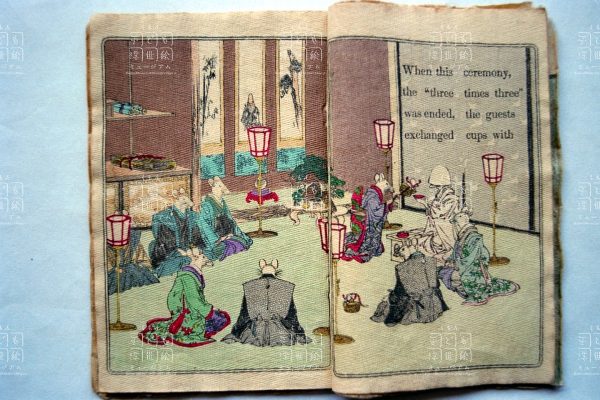 When this ceremony,
the "three times three"
was ended, the guests
exchanged cups with